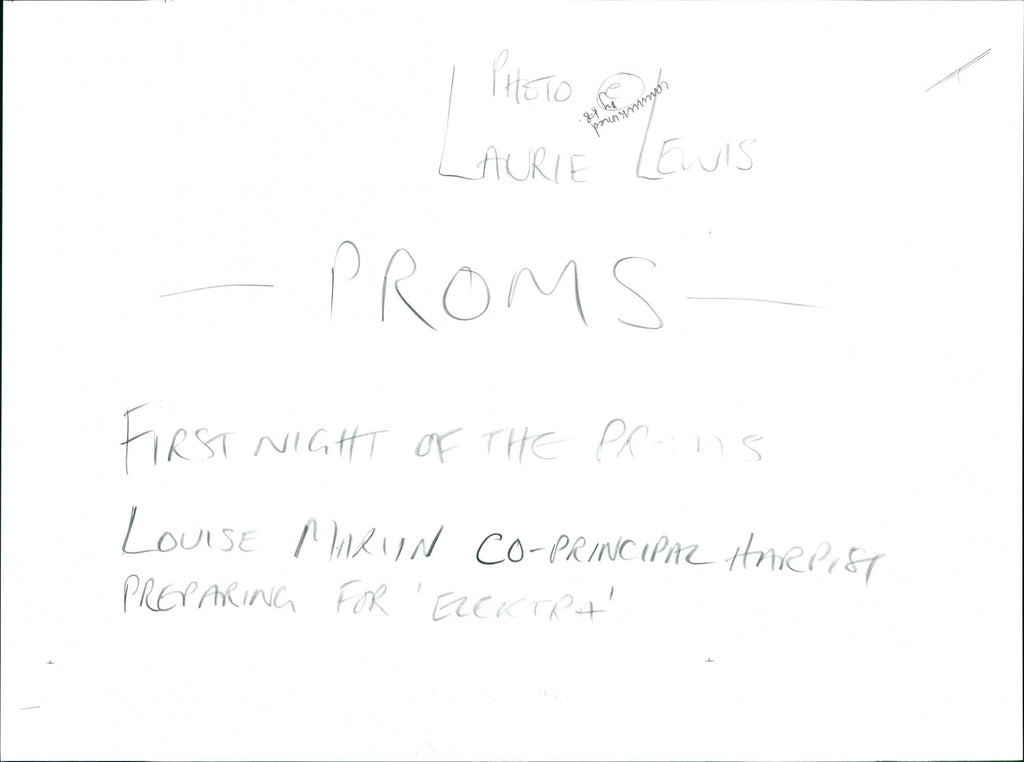 PHOTO ©
commissioned by KB.
LAURIE LEWIS
— PROMS —
FIRST NIGHT OF THE PROMS
LOUISE MARTIN CO-PRINCIPAL HARPIST
PREPARING FOR 'ELEKTRA'